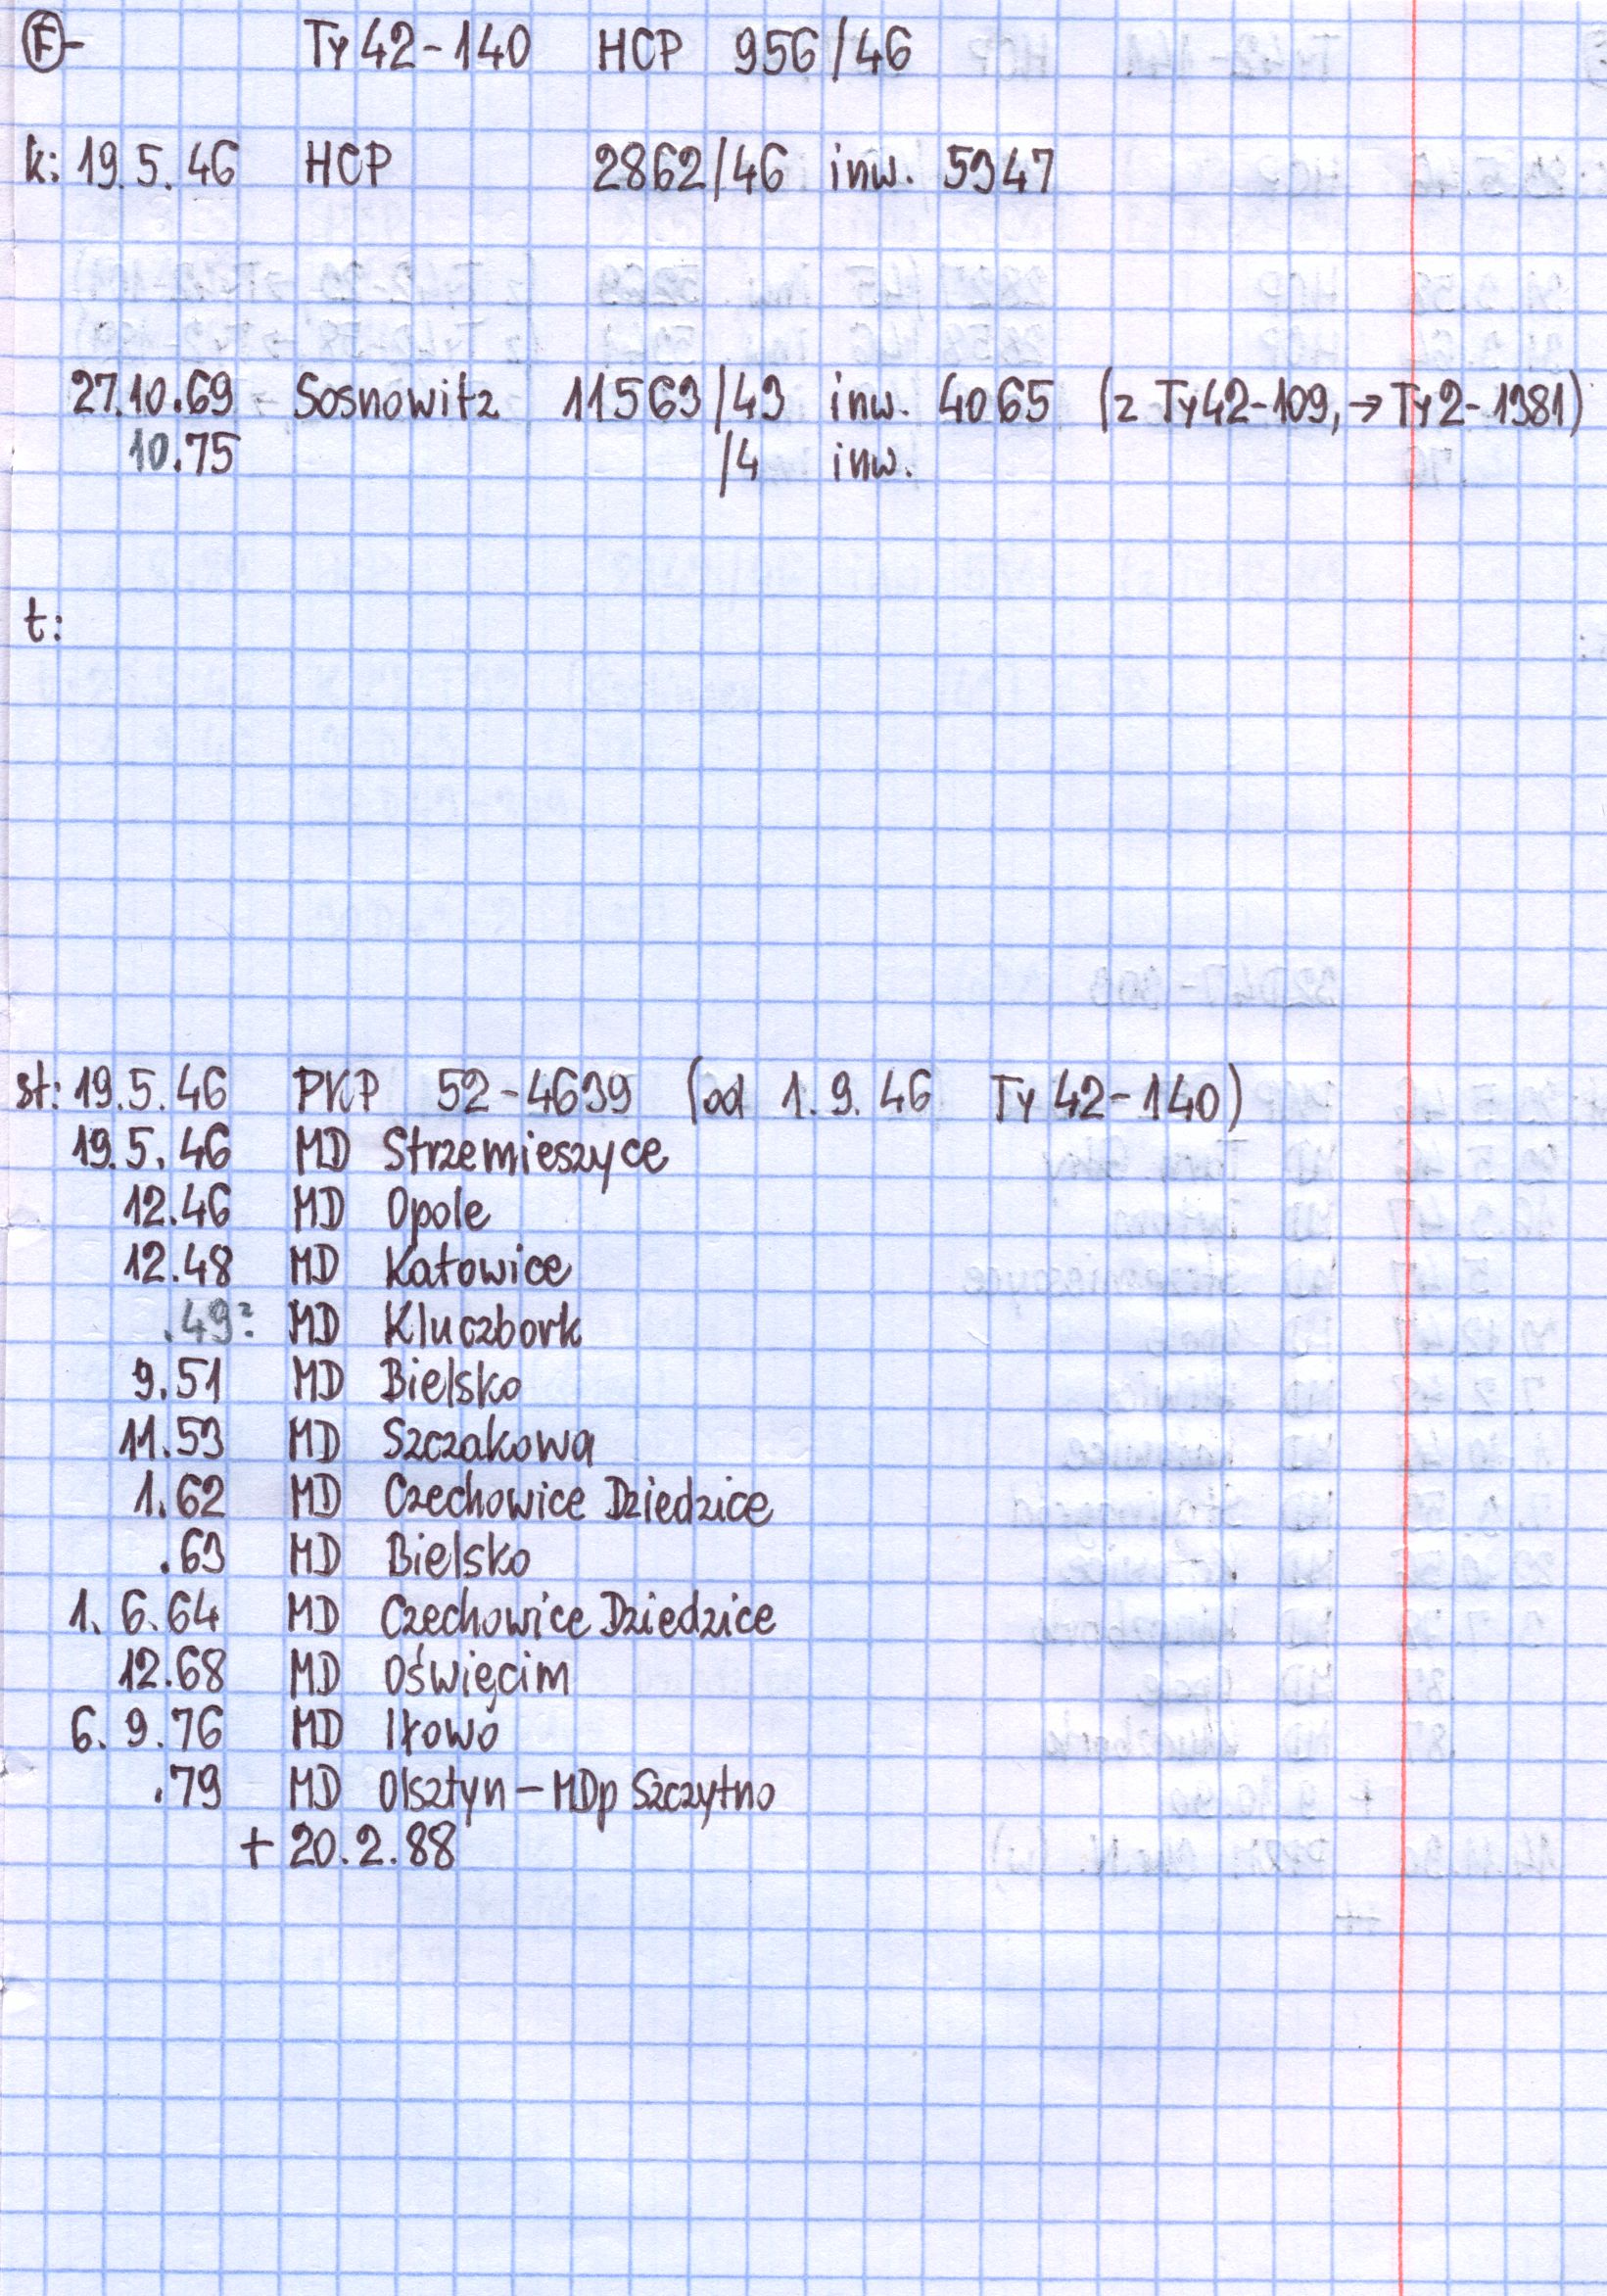 Ⓕ- Ty42-140 HCP 956/46
k: 19.5.46 HCP 2862/46 inw. 5347
27.10.69 - Sosnowitz 11563/43 inw. 4065 (z Ty42-109, → Ty2-1381)
10.75 /4 inw.
t:
st: 19.5.46 PKP 52-4639 (od 1.9.46 Ty42-140)
19.5.46 MD Strzemieszyce
12.46 MD Opole
12.48 MD Katowice
.49? MD Kluczbork
9.51 MD Bielsko
11.53 MD Szczakowa
1.62 MD Czechowice Dziedzice
.63 MD Bielsko
1.6.64 MD Czechowice Dziedzice
12.68 MD Oświęcim
6.9.76 MD Iłowo
.79 MD Olsztyn - MDp Szczytno
+ 20.2.88